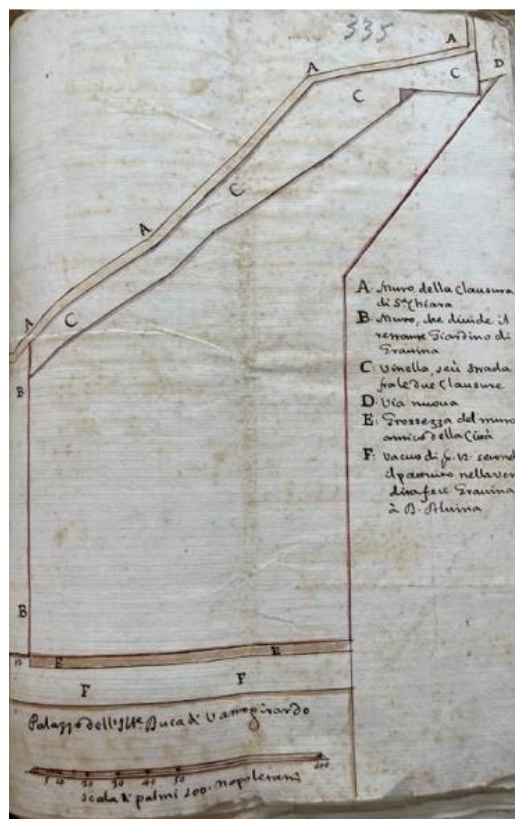 335
A
A
D
A
C
C
C
A
A
C
B
A. Muro della Clausura
di S.ta Chiara
B. Muro, che divide il
restante Giardino di
Gravina
C: Vinella, seù strada
frà le due Clausure
D. Via nuova
E: Grossezza del muro
antico della Città
F: Vacuo di p. 12. second
il pattuito nella ven
dita fece Gravina
à D. Aluina
B
12
E
E
F
F
Palazzo dell'Ill.e Duca di Vastogirardo
5 10 20 30 40 50 100
Scala di palmi 100. napoletani